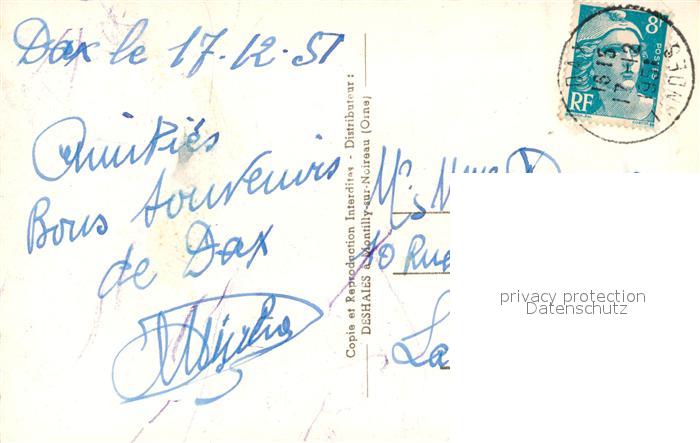 Dax le 17.12.51
Amitiés
Bons souvenirs
de Dax
Copie et Reproduction Interdites - Distributeur :
DESHAIES à Montilly-sur-Noireau (Orne)
8F
POSTES
RF
DAX
16 15
17-12
1951
LANDES
Mr Mme D
10 Rue
La
privacy protection
Datenschutz